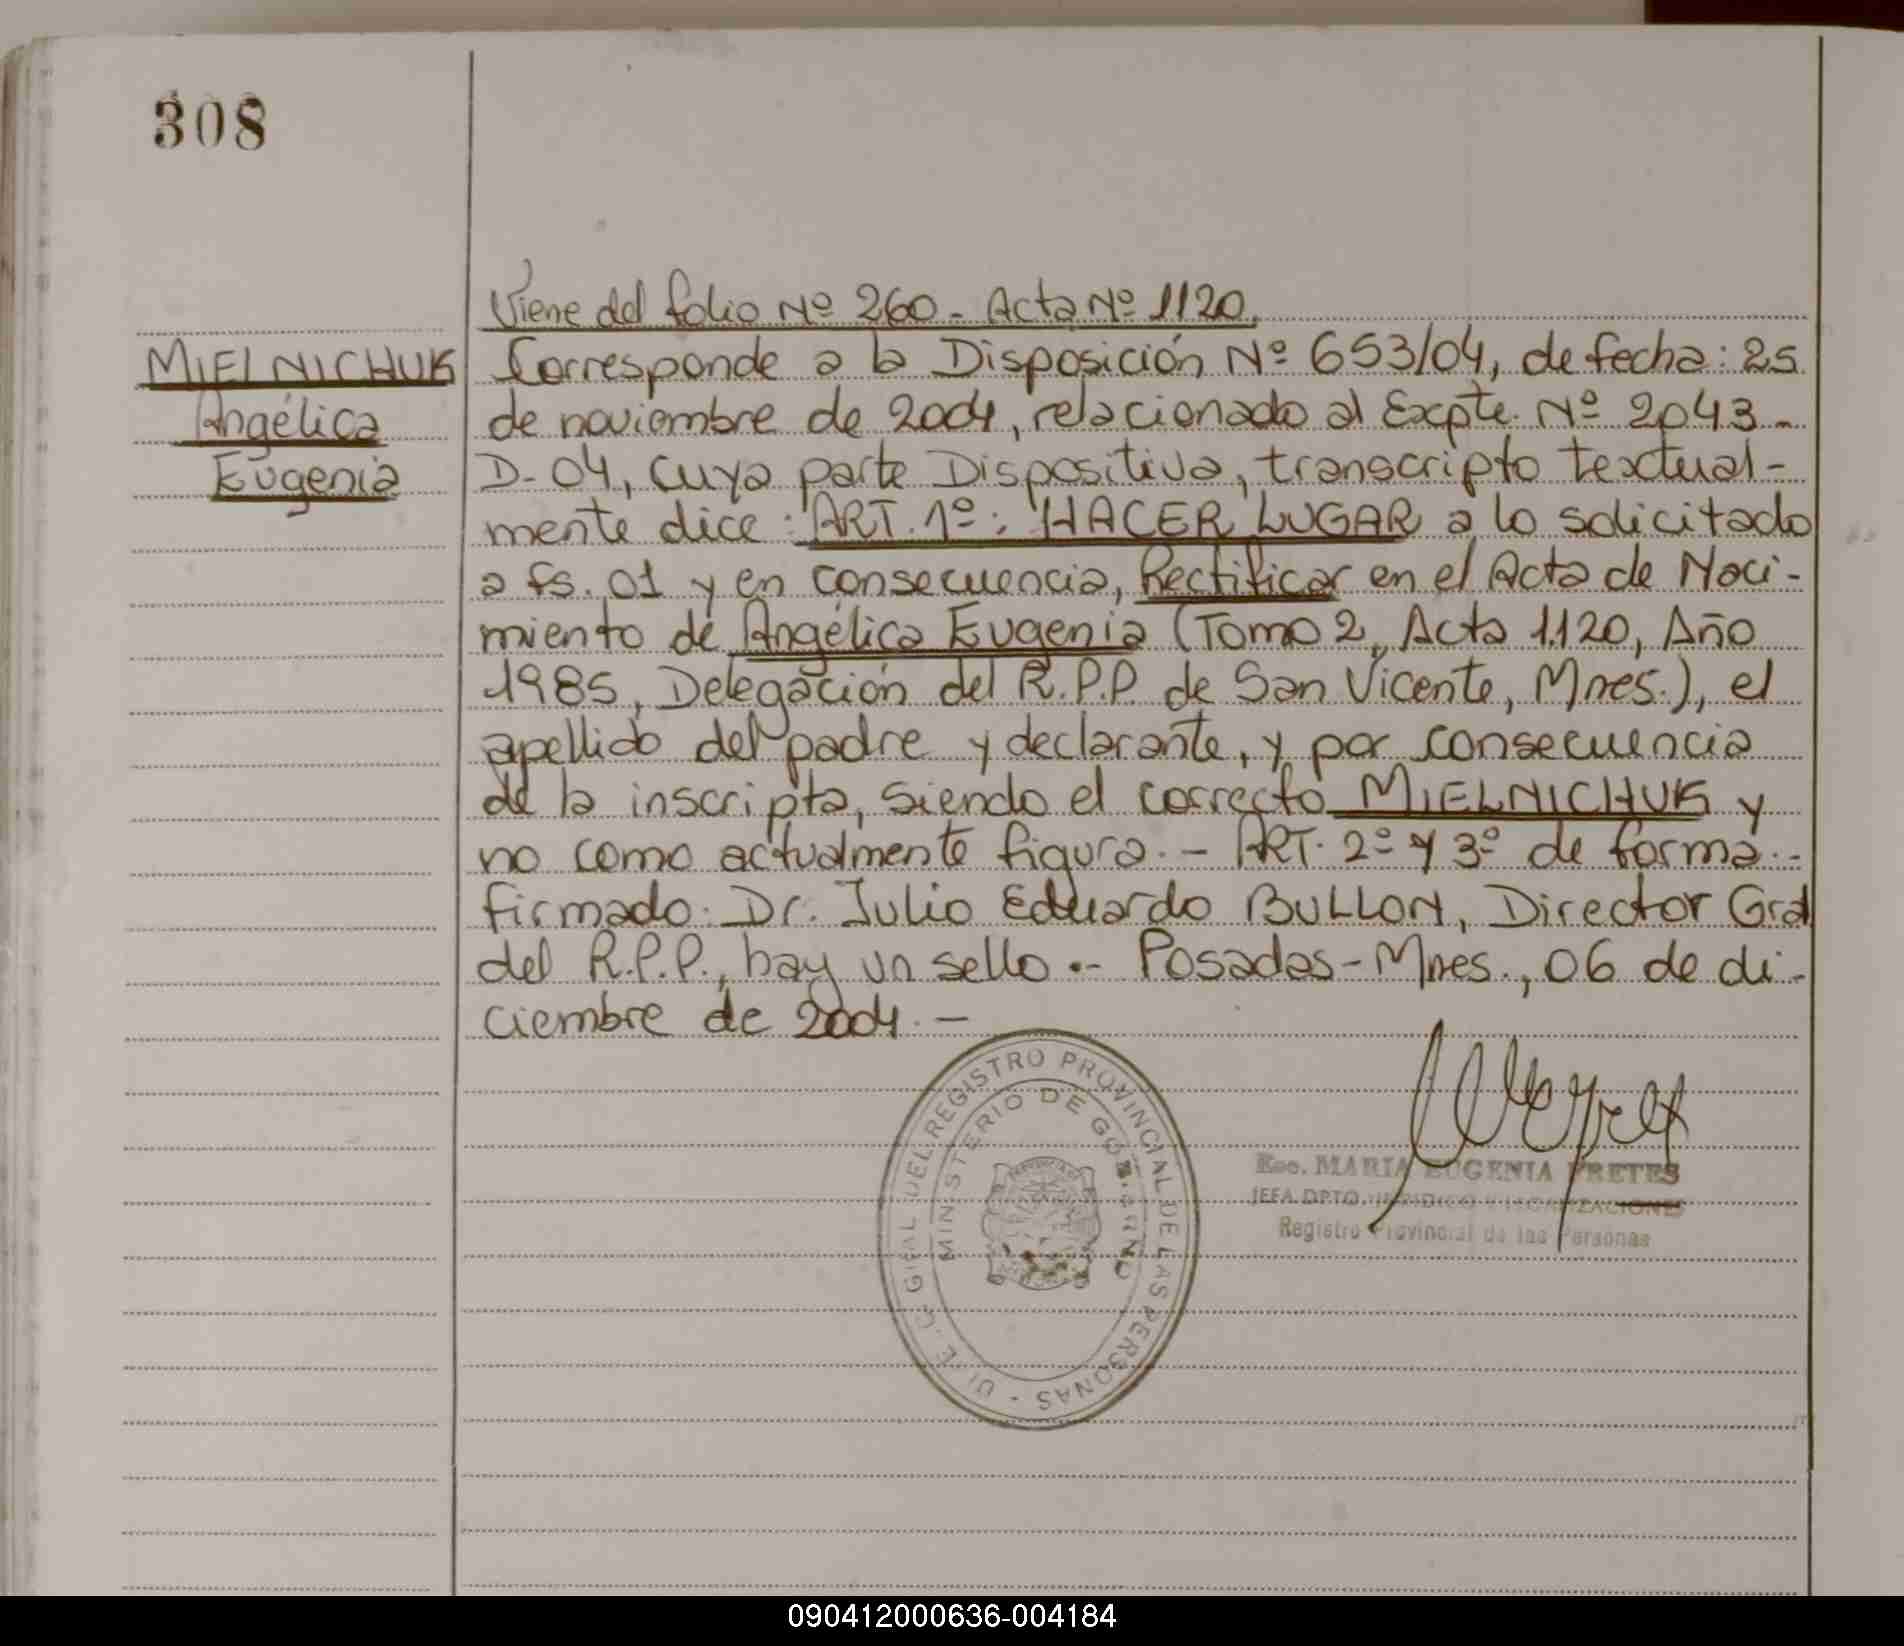 308
Viene del folio Nº 260 - Acta Nº 1120.
MIELNICHUK
Angélica
Eugenia
Corresponde a la Disposición Nº 653/04, de fecha: 25
de noviembre de 2004, relacionado al Expte. Nº 2043-
D-04, cuya parte Dispositiva, transcripto textual-
mente dice: ART. 1º: HACER LUGAR a lo solicitado
a fs. 01 y en consecuencia, Rectificar en el Acta de Naci-
miento de Angélica Eugenia (Tomo 2, Acta 1.120, Año
1985, Delegación del R.P.P. de San Vicente, Mnes.), el
apellido del padre y declarante, y por consecuencia
de la inscripta, siendo el correcto MIELNICHUK y
no como actualmente figura.- ART. 2º y 3º de forma.-
firmado: Dr. Julio Eduardo BULLON, Director Gral
del R.P.P., hay un sello.- Posadas-Mnes., 06 de di-
ciembre de 2004.-
REGISTRO PROVINCIAL DE LAS PERSONAS
MINISTERIO DE GOBIERNO
Esc. MARIA EUGENIA PRETES
JEFA DPTO. JURIDICO Y LEGALIZACIONES
Registro Provincial de las Personas
090412000636-004184